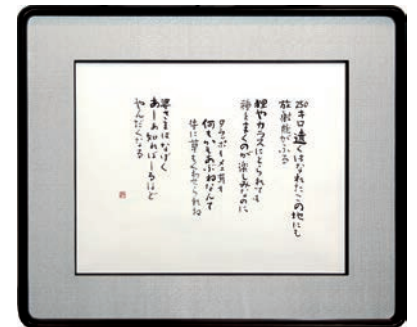 250キロ遠くはなれたこの地にも
放射能がふる
狸やカラスにとられても
種をまくのが楽しみなのに
タラッポも
何もかもあぶねなんて
牛に草もくわせられね
婆さまはなげく
あーあ知ればしるほど
やんだくなる